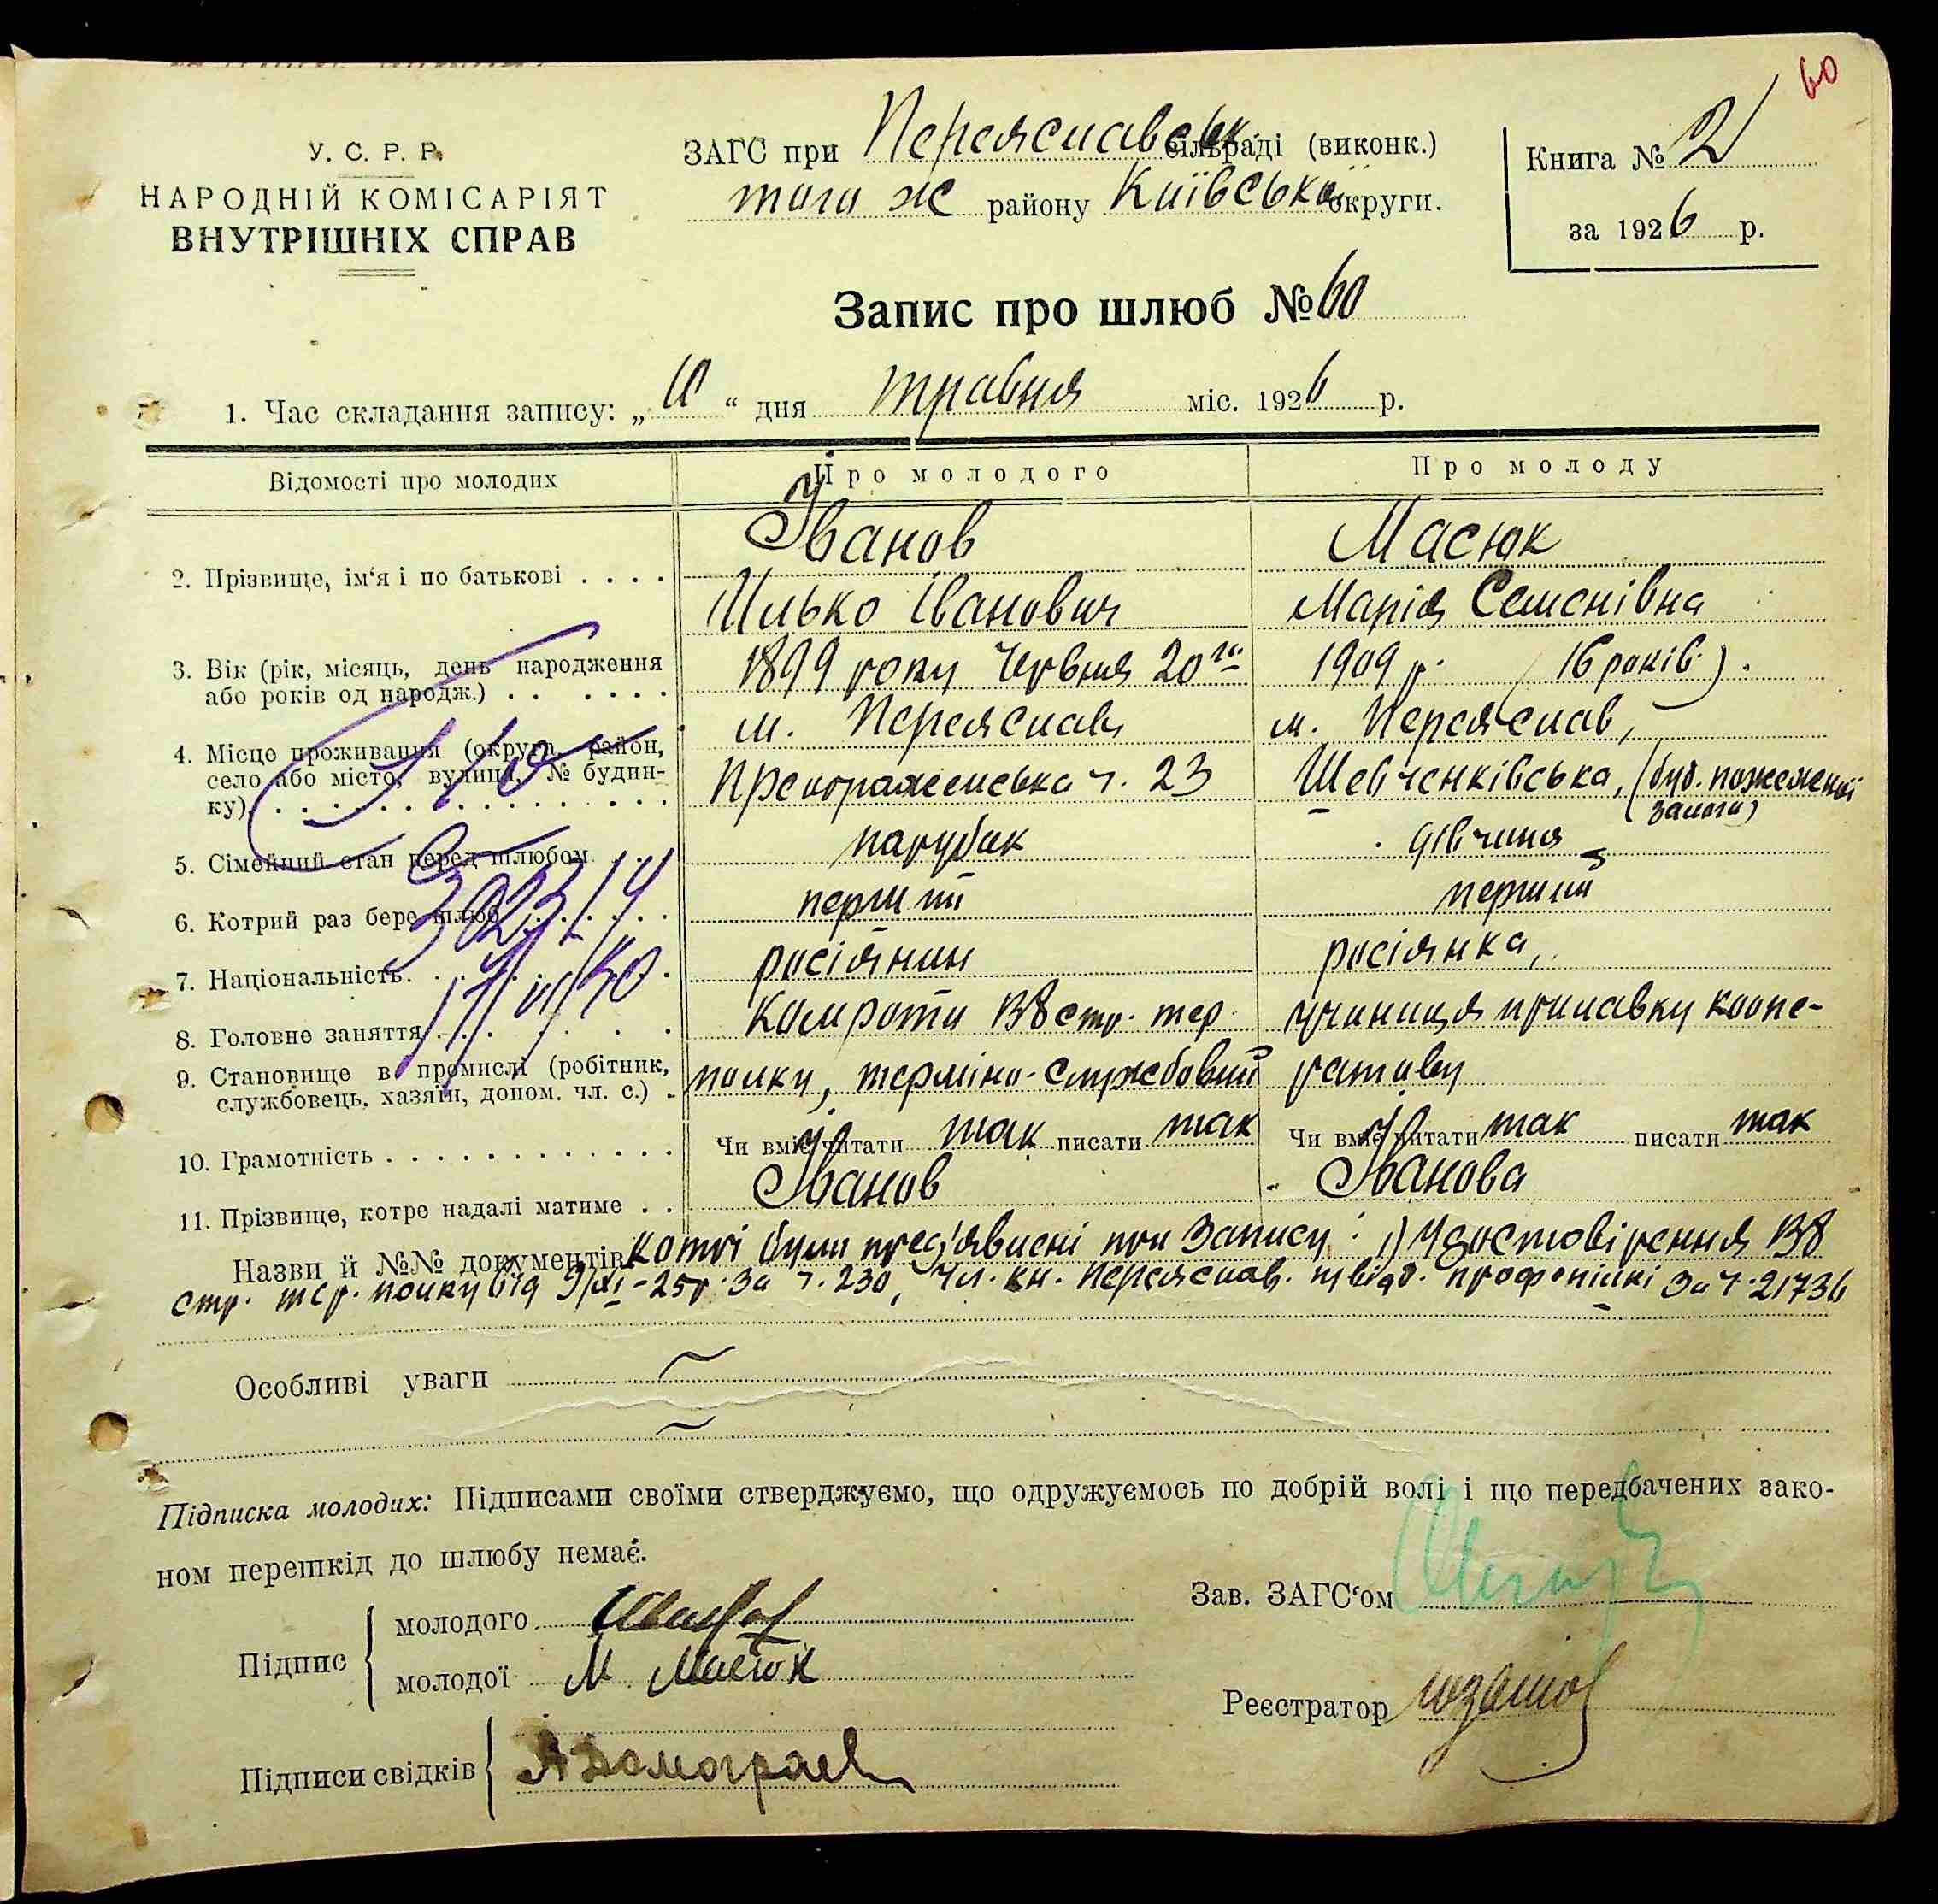 60
У. С. Р. Р.
НАРОДНІЙ КОМІСАРІЯТ
ВНУТРІШНІХ СПРАВ
ЗАГС при Переяславськ. сільраді (виконк.)
того ж району Київської округи.
Книга № 2
за 1926 р.
Запис про шлюб № 60
1. Час складання запису: „10“ дня травня міс. 1926 р.
Відомості про молодих
Про молодого
Про молоду
2. Прізвище, ім‘я і по батькові . . . .
Іванов
Ілько Іванович
Масюк
Марія Семенівна
3. Вік (рік, місяць, день народження
або років од народж.) . . . . . .
1899 року Червня 20го
1909 р. (16 років).
4. Місце проживання (округа, район,
село або місто, вулиця, № будин-
ку) . . . . . . . . . . . . . .
м. Переяслав
Преображенська ч. 23
м. Переяслав,
Шевченківська, (буд. пожежної
залоги)
5. Сімейний стан перед шлюбом . . .
парубак
дівчина
6. Котрий раз бере шлюб . . . . . .
перший
перший
7. Національність. . . . . . . . . .
росіянин
росіянка,
8. Головне заняття . . . . . . . .
9. Становище в промислі (робітник,
службовець, хазяїн, допом. чл. с.) .
Комроти 138 стр. тер.
полку, терміно-службовий
учениця прилавку коопе-
ративу
10. Грамотність . . . . . . . . . . . .
Чи вміє читати так писати так
Чи вміє читати так писати так
11. Прізвище, котре надалі матиме . .
Іванов
Іванова
Назви й №№ документів, котрі були пред'явлені при Запису: 1) Удостовірення 138
стр. тер. полку від 9/XI-25р. За ч. 230, Чл. кн. Переяслав. профспілкі За ч. 21736
Особливі уваги
Підписка молодих: Підписами своїми стверджуємо, що одружуємось по добрій волі і що передбачених зако-
ном перешкід до шлюбу немає.
Підпис
молодого Иванов
молодої М. Масюк
Підписи свідків
Зав. ЗАГС‘ом
Реєстратор